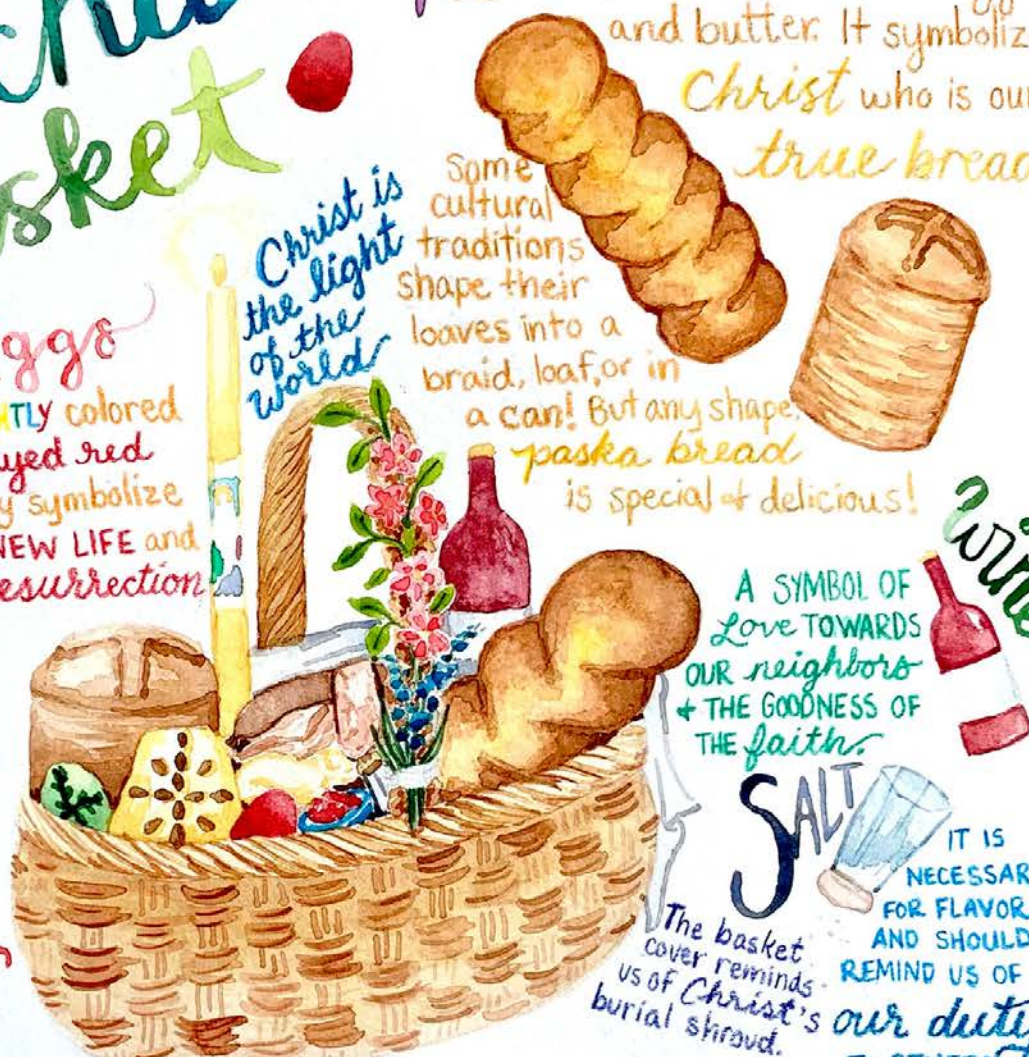 sket
and butter. It symboliz
Christ who is our
true bread
Some
cultural
traditions
shape their
loaves into a
braid, loaf, or in
a can! But any shape,
paska bread
is special & delicious!
Christ is
the light
of the
world
ggs
TLY colored
yed red
y symbolize
NEW LIFE and
esurrection
Wine
A SYMBOL OF
Love TOWARDS
OUR neighbors
& THE GOODNESS OF
THE faith.
SALT
IT IS
NECESSAR
FOR FLAVOR
AND SHOULD
REMIND US OF
our duty
The basket
cover reminds
us of Christ's
burial shroud.